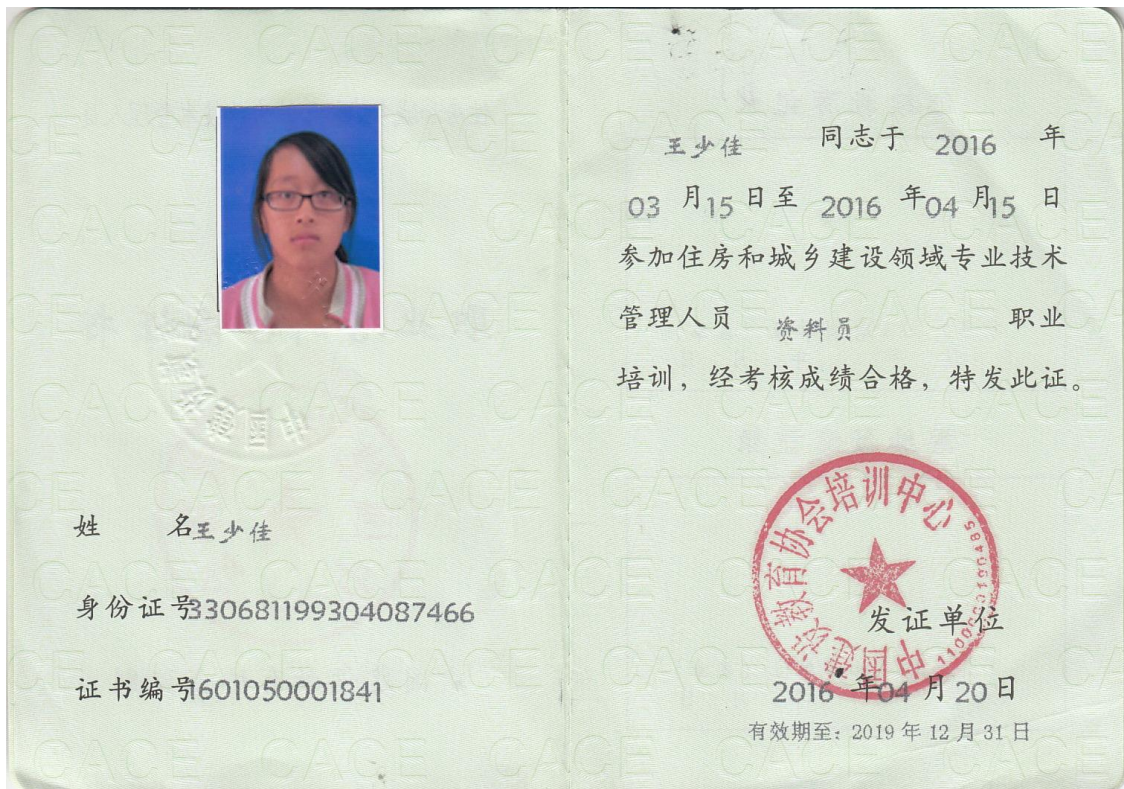 姓 名王少佳
身份证号330681199304087466
证书编号1601050001841
王少佳 同志于 2016 年
03 月15 日至 2016 年04 月15 日
参加住房和城乡建设领域专业技术
管理人员 资料员 职业
培训，经考核成绩合格，特发此证。
中国建设教育协会培训中心
发证单位
2016 年04 月20日
有效期至：2019 年 12 月 31 日
CACE